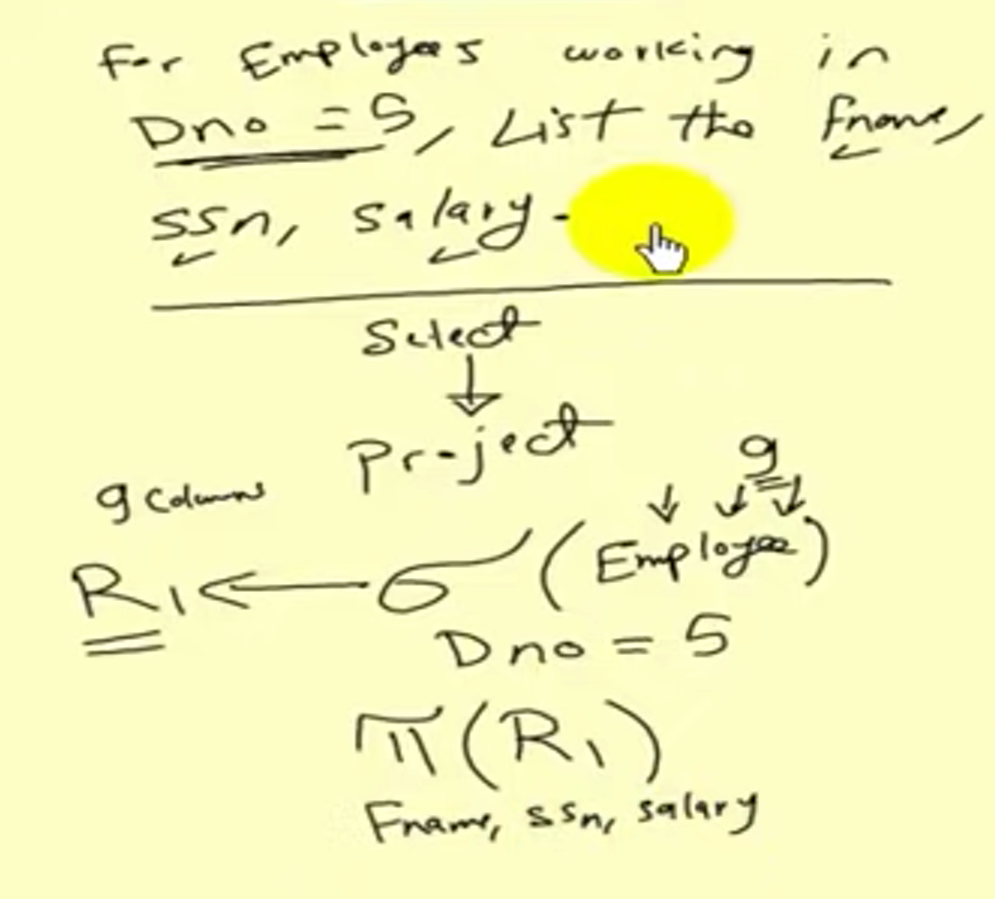 For Employees working in
Dno = 5, List the fname,
ssn, salary.
Select
↓
Project
9
9 Columns
R1 ← σ (Employee)
Dno = 5
π (R1)
Fname, ssn, salary